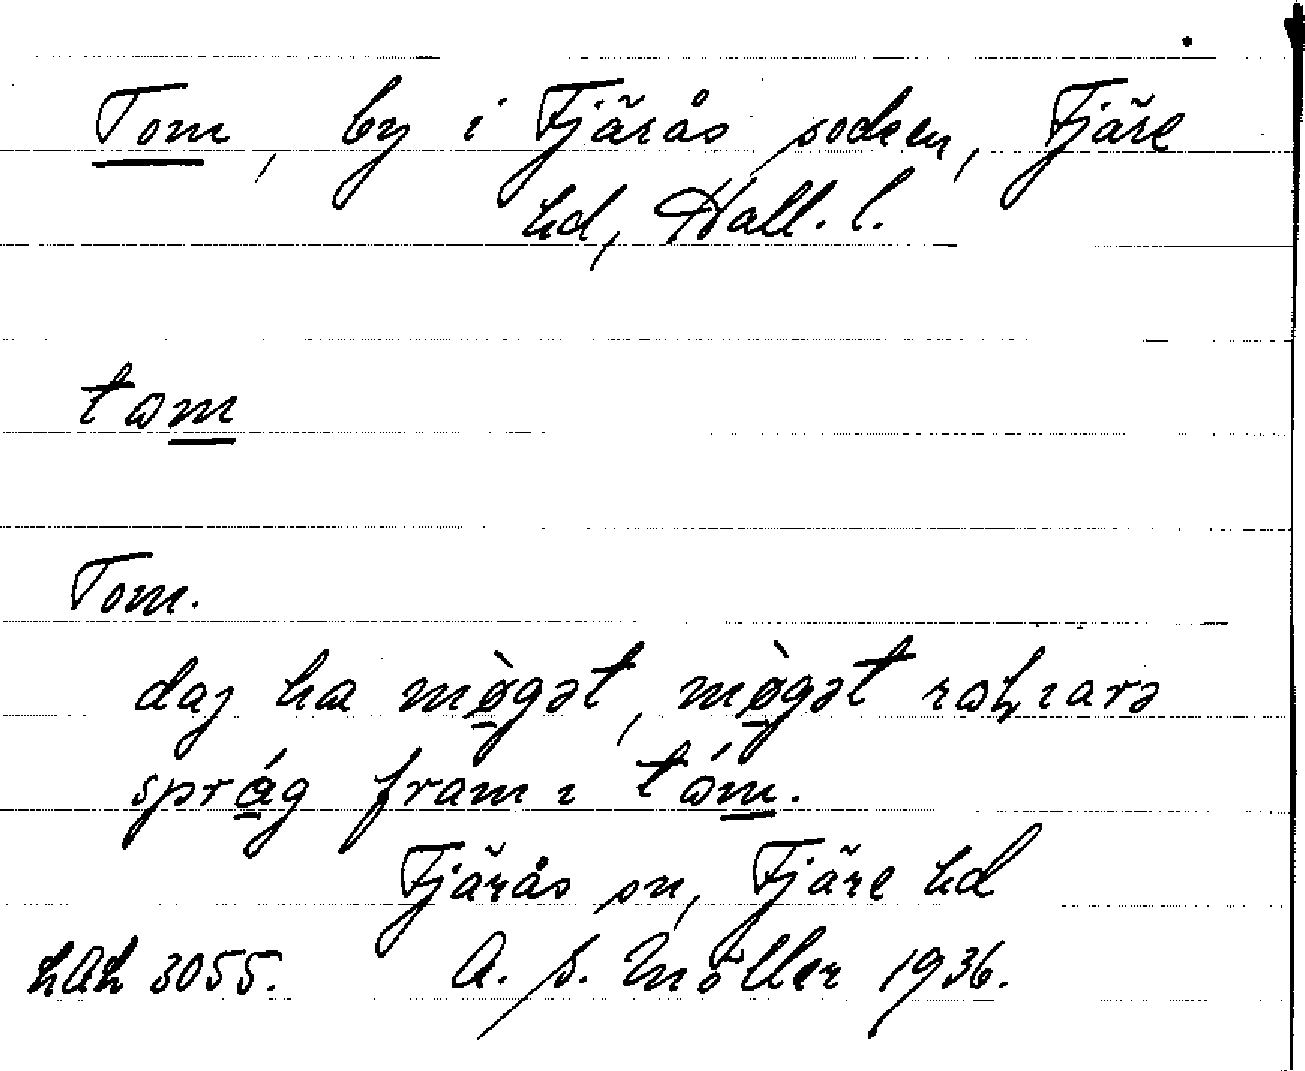 Tom, by i Fjärås socken, Fjäre
hd, Hall. l.
tɷm
Tom.
daj ha mø̀gət, mø̀gət
sprǻg fram ı tɷ́m.
Fjärås sn, Fjäre hd
3055. A. S. Möller 1936.